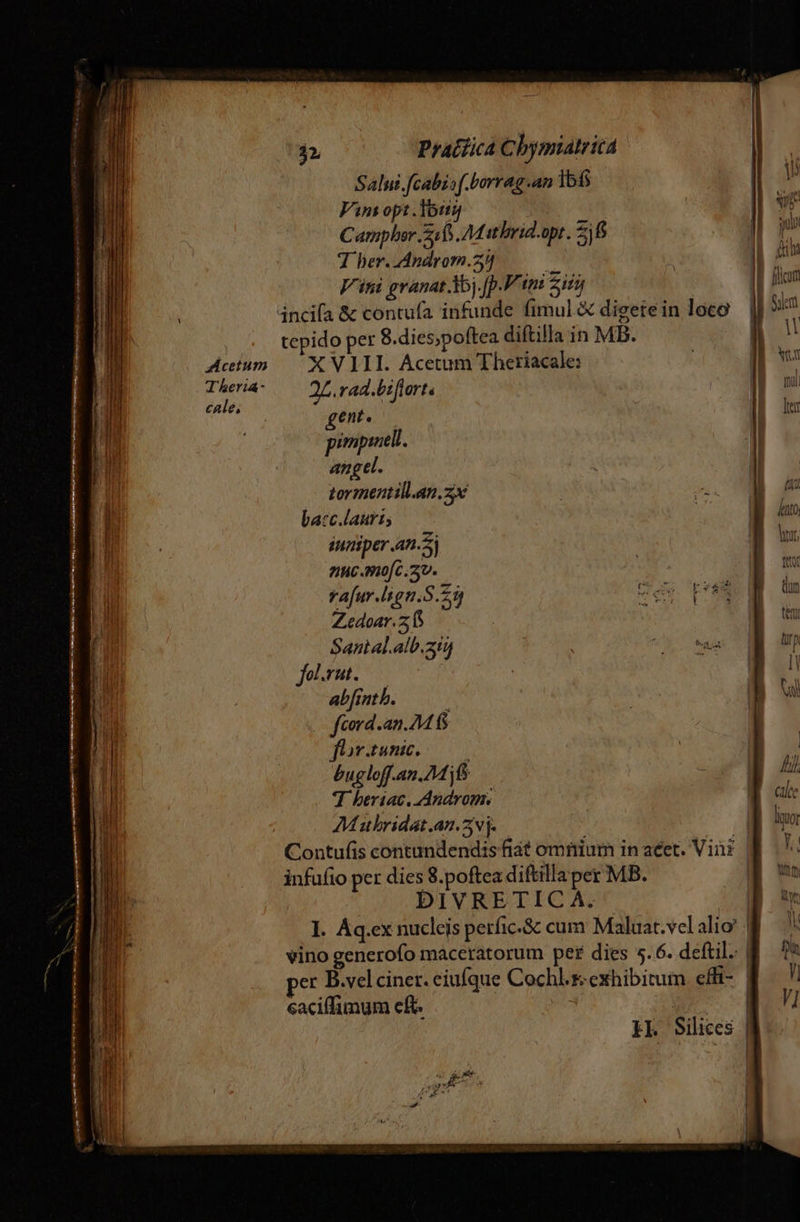 32 Practica Chymiatrica
Salui.ſcabioſ.borrag.an ℔ß
Vini opt.℔iiij
Camphor.ʒiß.Mithrid.opt.℥jß
Ther.Androm.℥ij
Vini granat.℔j.ſp.Vini ℥iiij
inciſa & contuſa infunde ſimul & digere in loco
tepido per 8.dies,poſtea diſtilla in MB.
Acetum Theria-cale, XVIII. Acetum Theriacale:
♃.rad.biſtortæ
gent.
pimpinell.
angel.
tormentill.an.ʒx
bacc.lauri,
iuniper.an.℥j
nuc.moſc.ʒv.
raſur.lign.S.℥ij
Zedoar.ʒß
Santal.alb.ʒiij
fol.rut.
abſinth.
ſcord.an.Mß
flor.tunic.
bugloſſ.an.Mjß
Theriac.Androm.
Mithridat.an.ʒvj.
Contuſis contundendis fiat omnium in acet. Vini
infuſio per dies 8.poſtea diſtilla per MB.
DIVRETICA.
I. Aq.ex nucleis perſic.& cum Maluat.vel alio
vino generoſo maceratorum per dies 5.6. deſtil.
per B.vel ciner. eiuſque Cochl.1.exhibitum effi-
caciſſimum eſt.
II. Silices